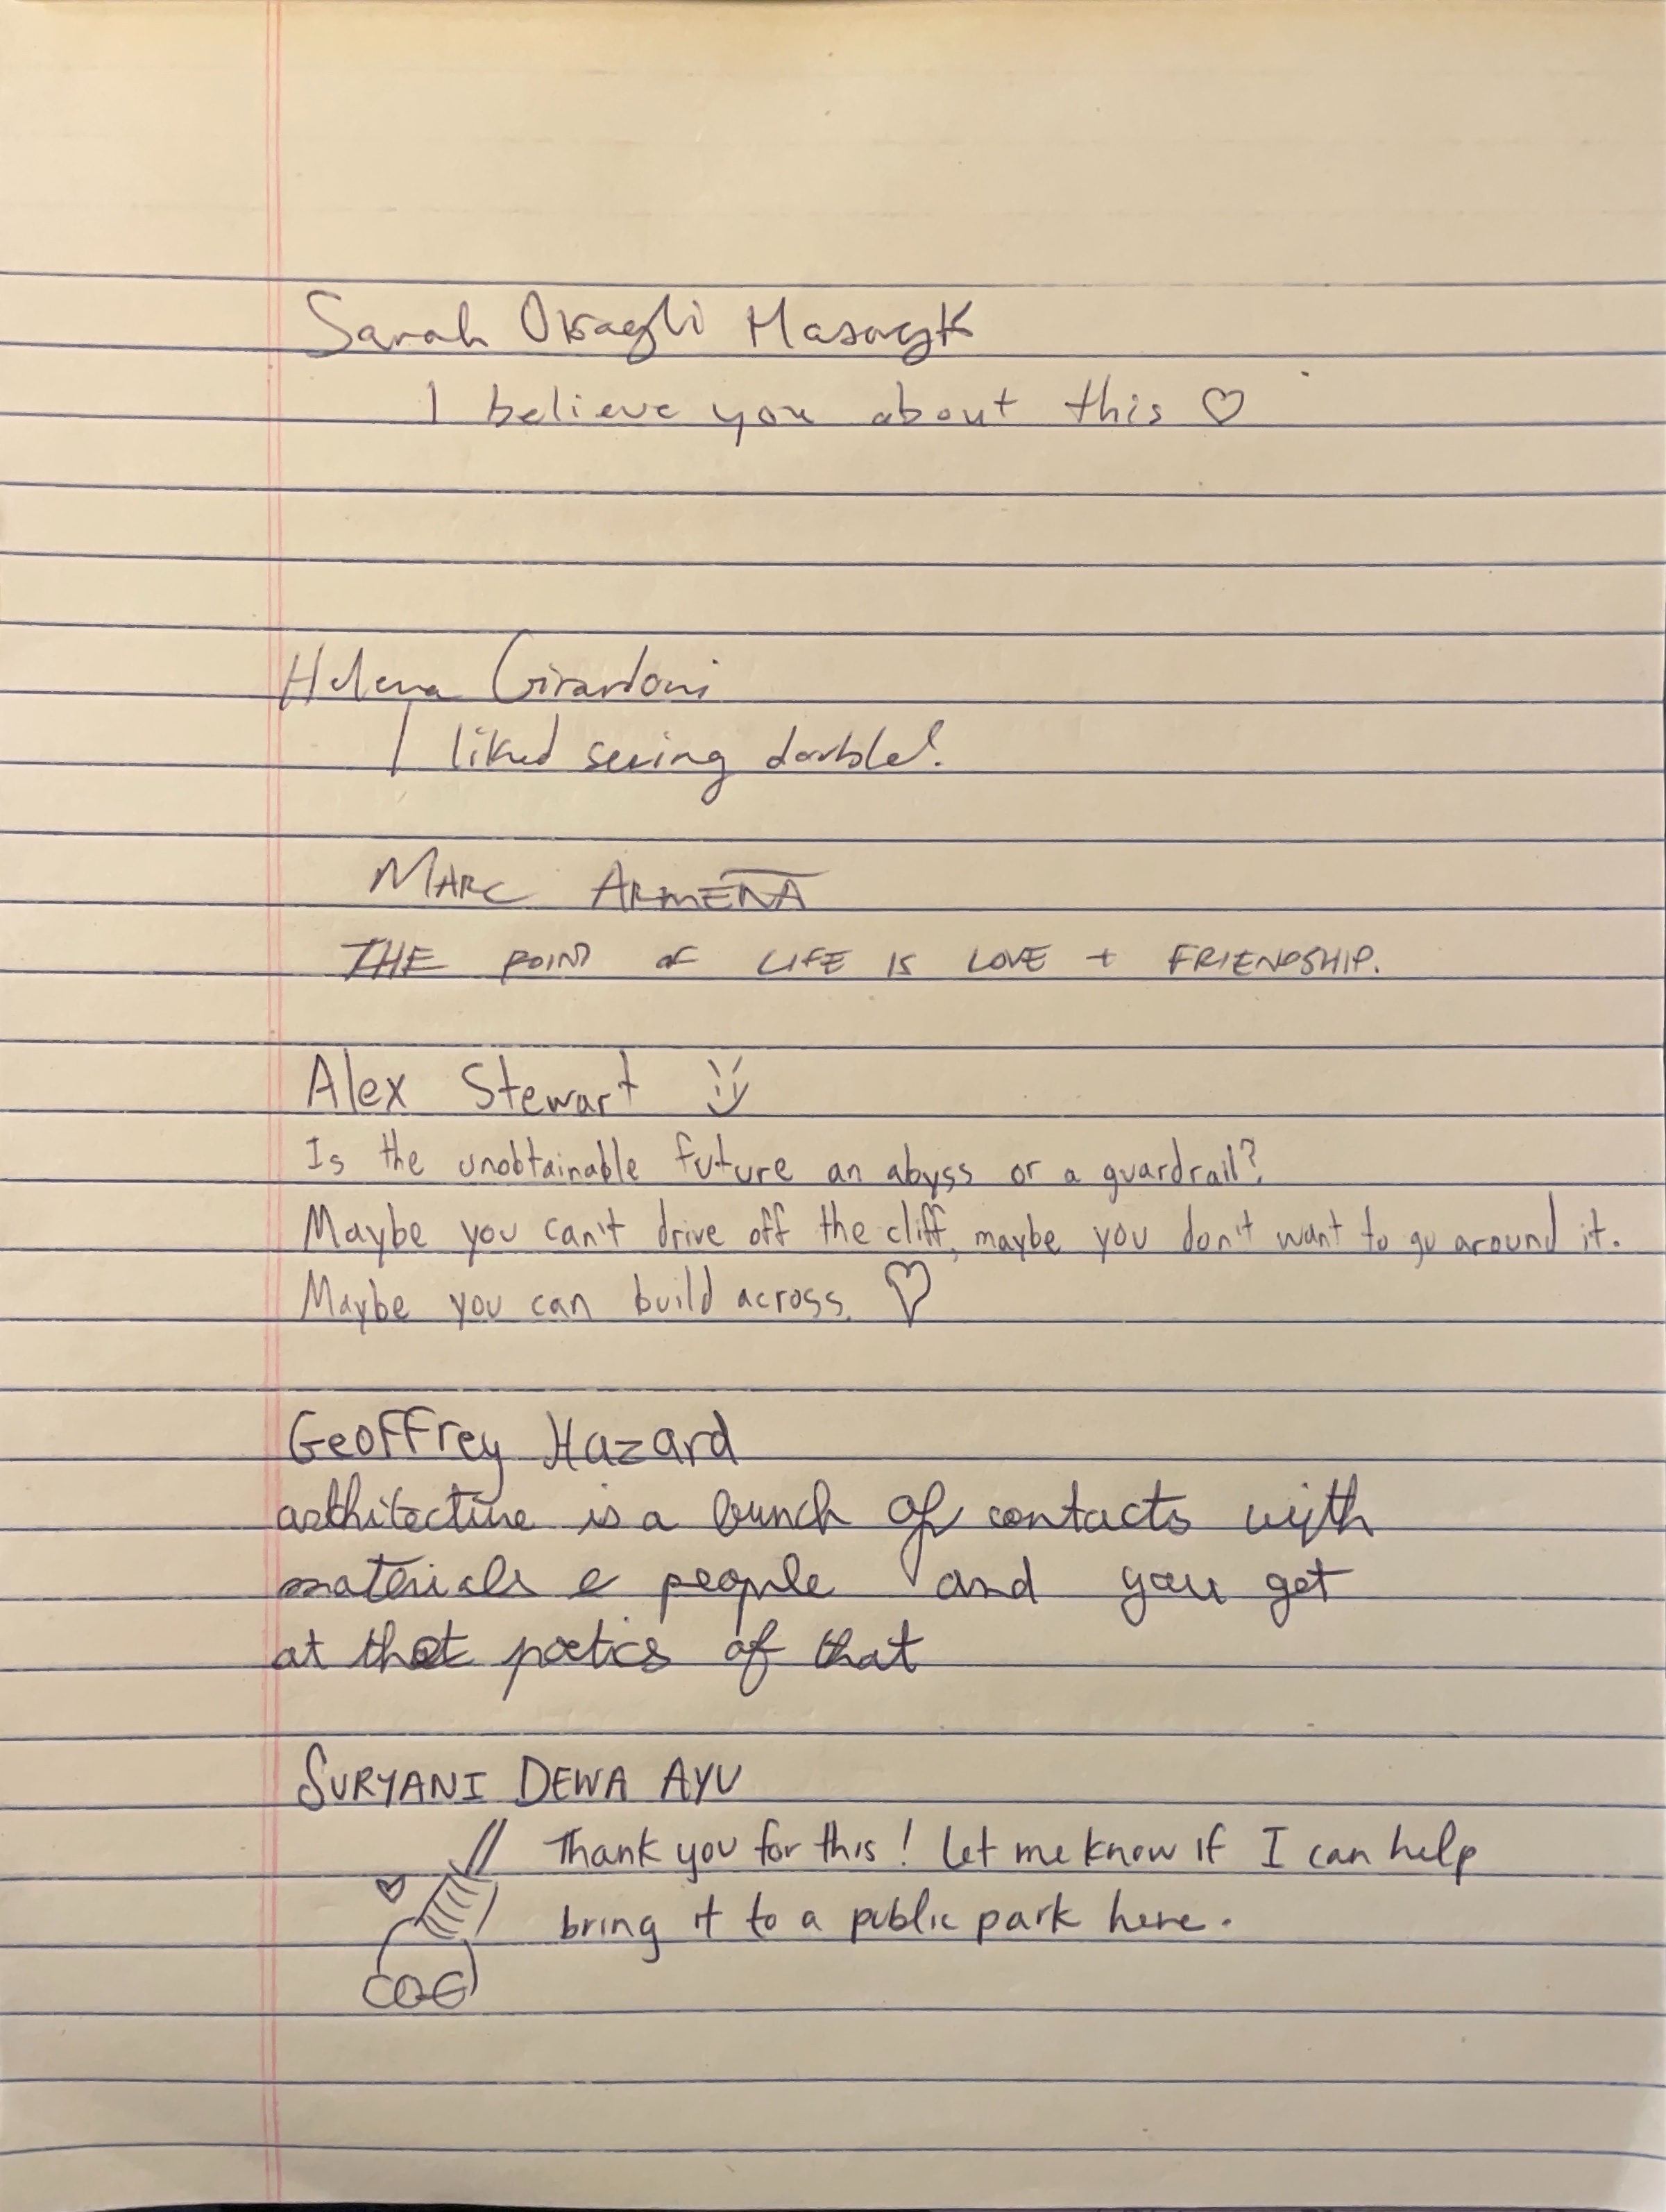 Sarah
I believe you about this ♡
Helena Girardoni
I liked seeing double!
MARC ARMEÑA
THE POINT OF LIFE IS LOVE + FRIENDSHIP.
Alex Stewart
Is the unobtainable future an abyss or a guardrail?
Maybe you can't drive off the cliff, maybe you don't want to go around it.
Maybe you can build across. ♡
Geoffrey Hazard
architecture is a bunch of contacts with
materials e people and you get
at that poetics of that
SURYANI DEWA AYU
Thank you for this! Let me know if I can help
bring it to a public park here.